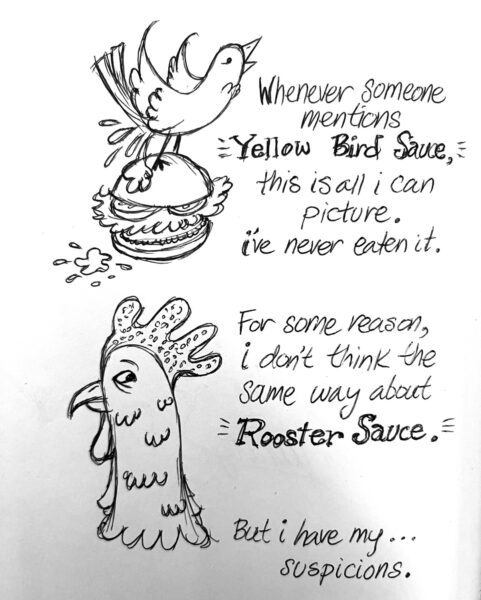 Whenever someone
mentions
Yellow Bird Sauce,
this is all i can
picture.
i've never eaten it.
For some reason,
i don't think the
same way about
Rooster Sauce.
But i have my...
suspicions.